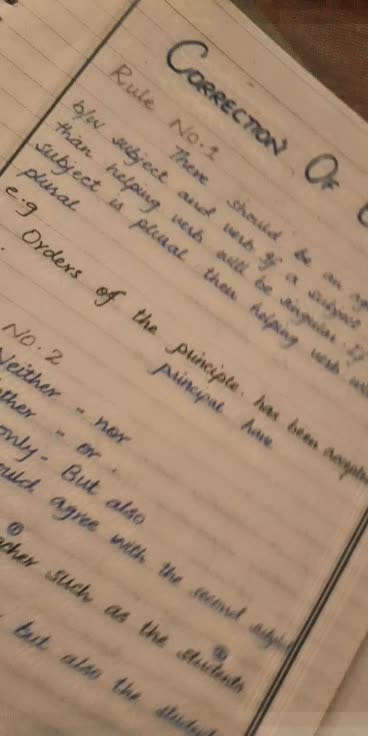 CORRECTION OF
Rule No.1
There should be an
b/w subject and verb If a subject
than helping verb will be singular. If
subject is plural then helping verb
plural
e.g
Orders of the principle. has been
principal have
No. 2
Neither - nor
- or
only - But also
agree with the second
such as the students
but also the